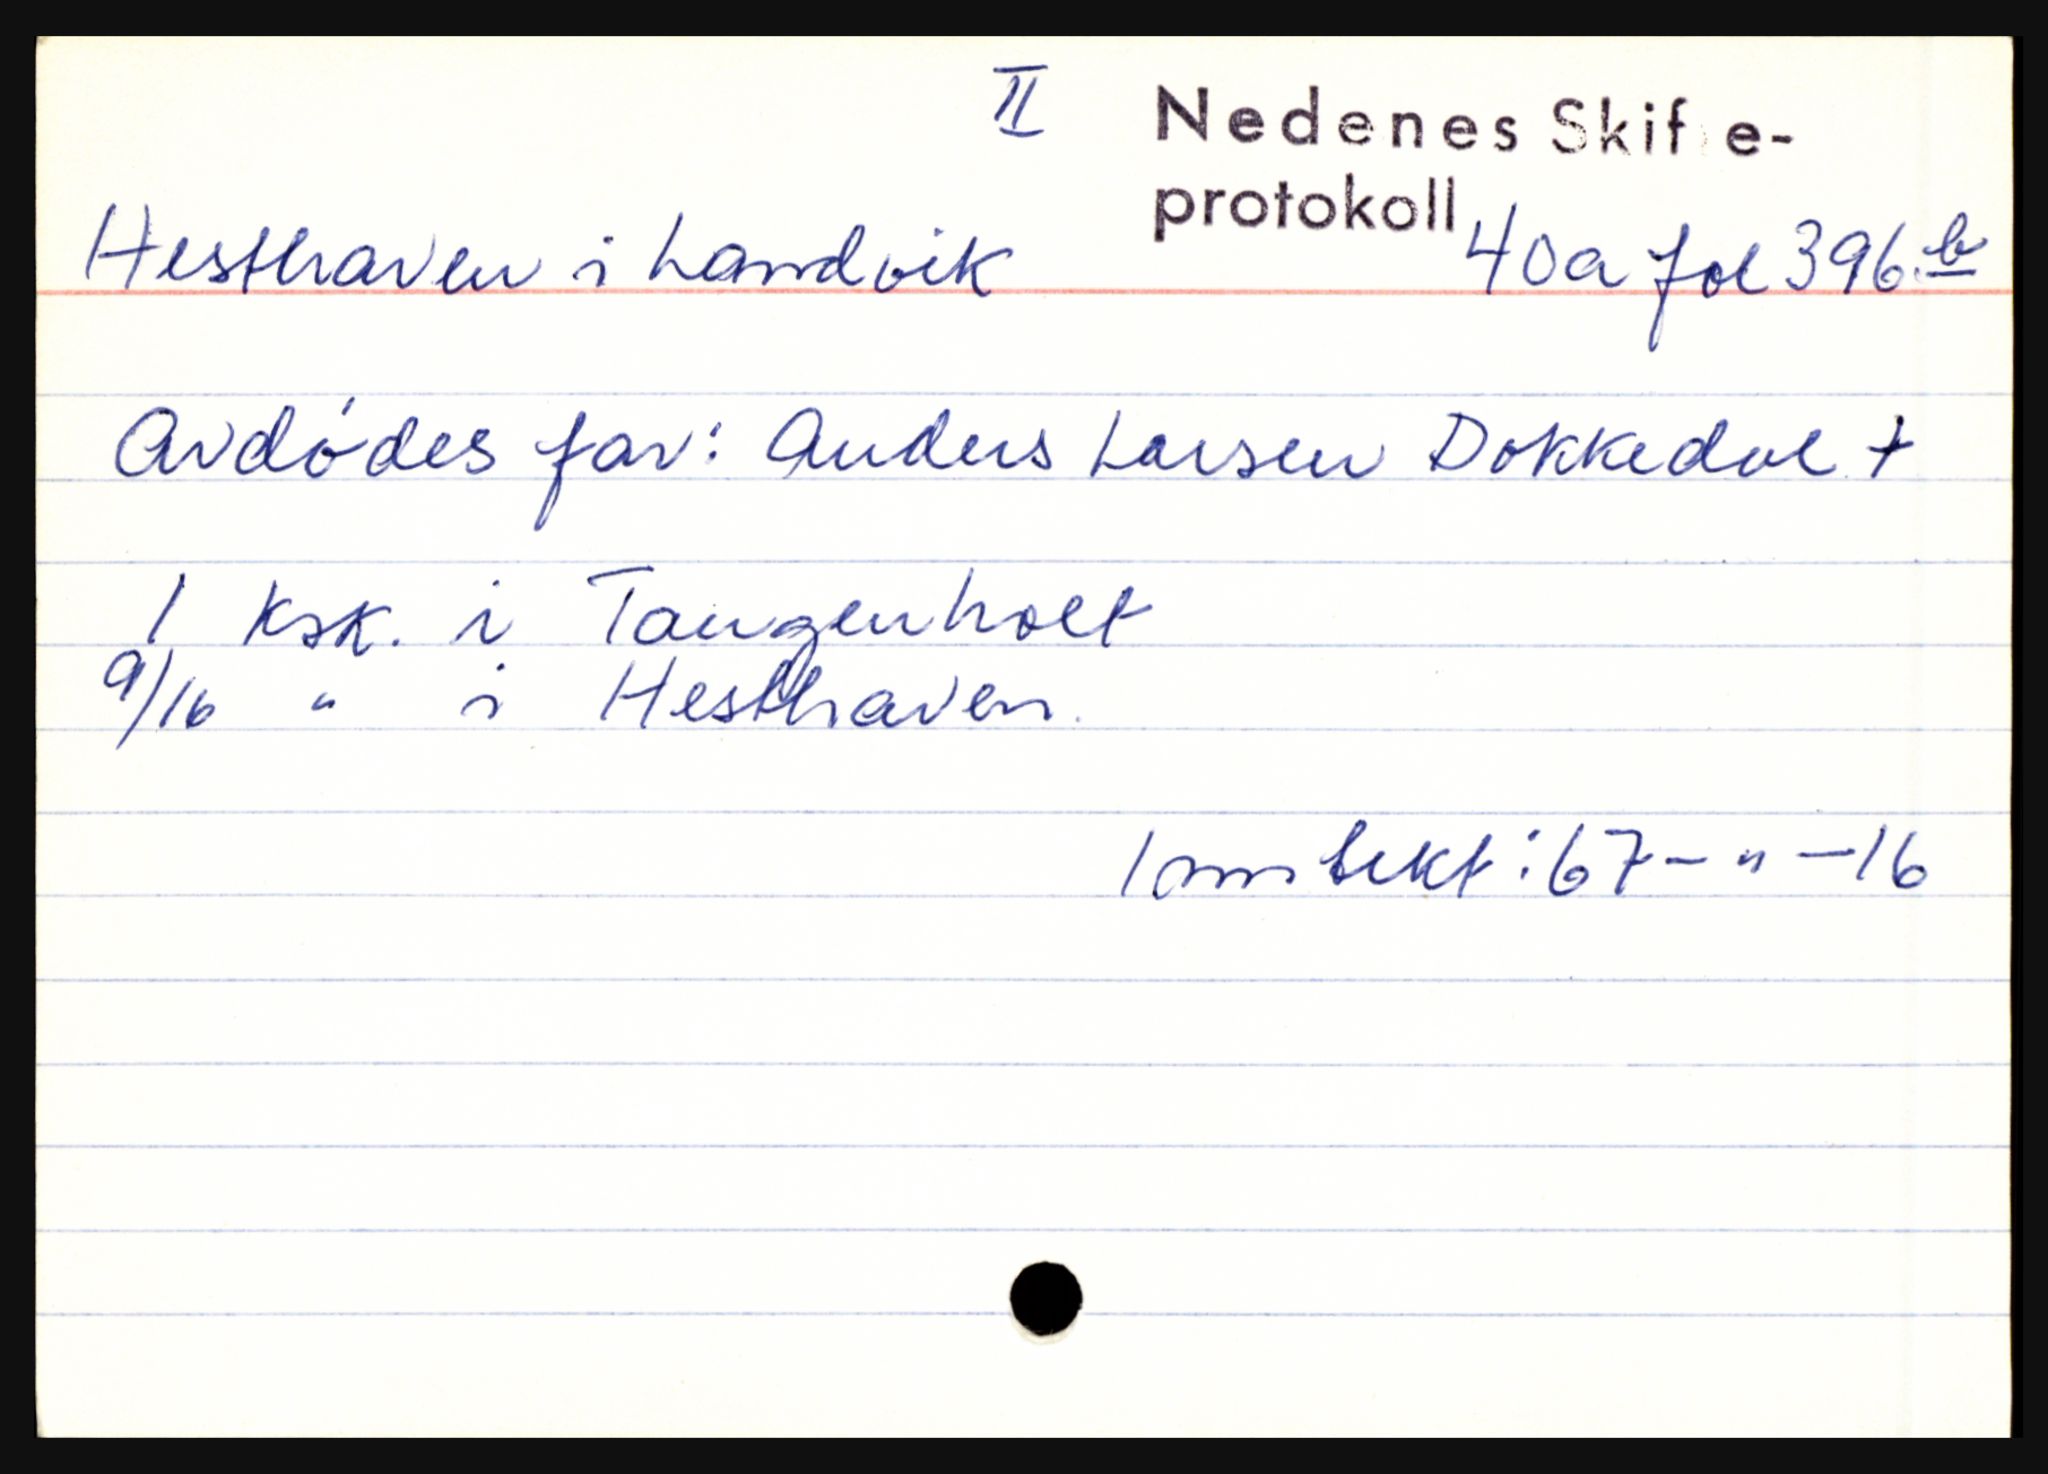 II Nedenes Skifte-
protokoll
Hesthaven i Landvik 40a fol 396 b
Avdødes far: Anders Larsen Dokkedal +
1 ksk. i Tangenholt
9/16 " i Hesthaven.
Inntekt: 67 - " - 16